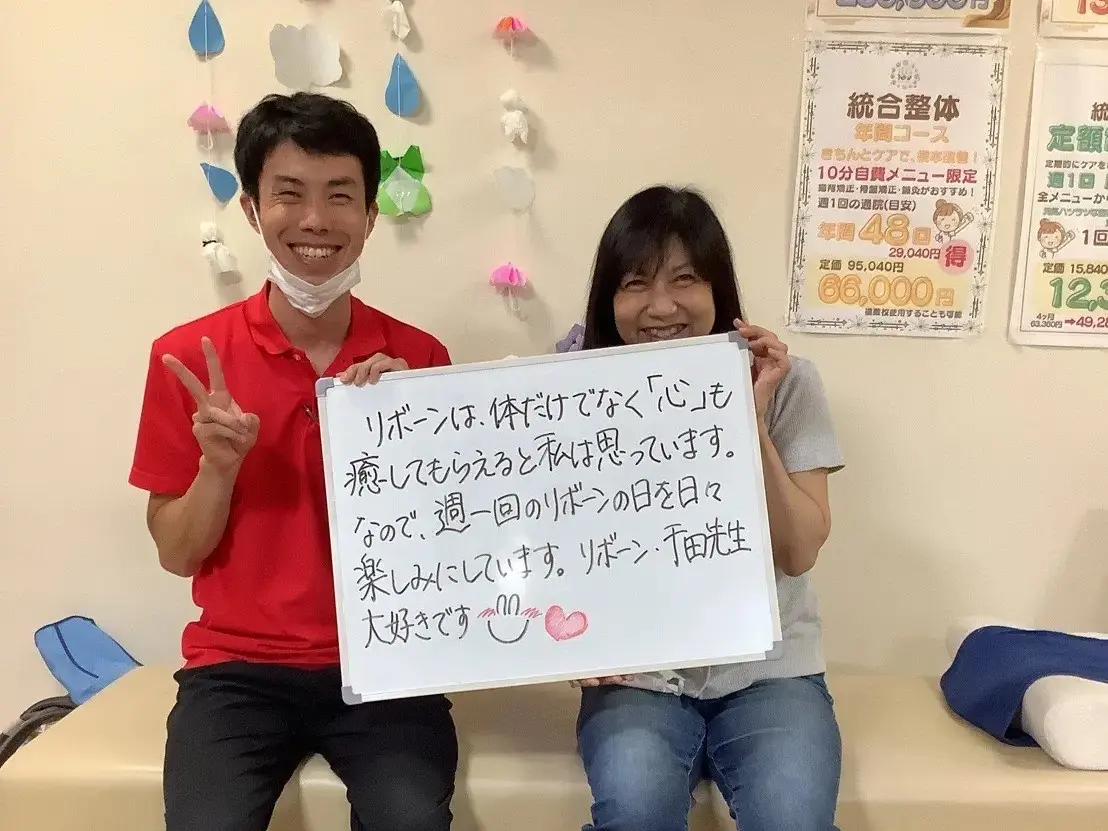 リボーンは、体だけでなく「心」も
癒してもらえると私は思っています。
なので、週一回のリボーンの日を日々
楽しみにしています。リボーン・千田先生
大好きです
統合整体
年間コース
きちんとケアで、根本改善！
10分自費メニュー限定
週1回の通院(目安)
年間48回
29,040円
得
定価 95,040円
66,000円
統
定額
定期的にケアを
週1回
全メニューか
1回
定価 15,840
12,3
4ヶ月
63,360円→49,28